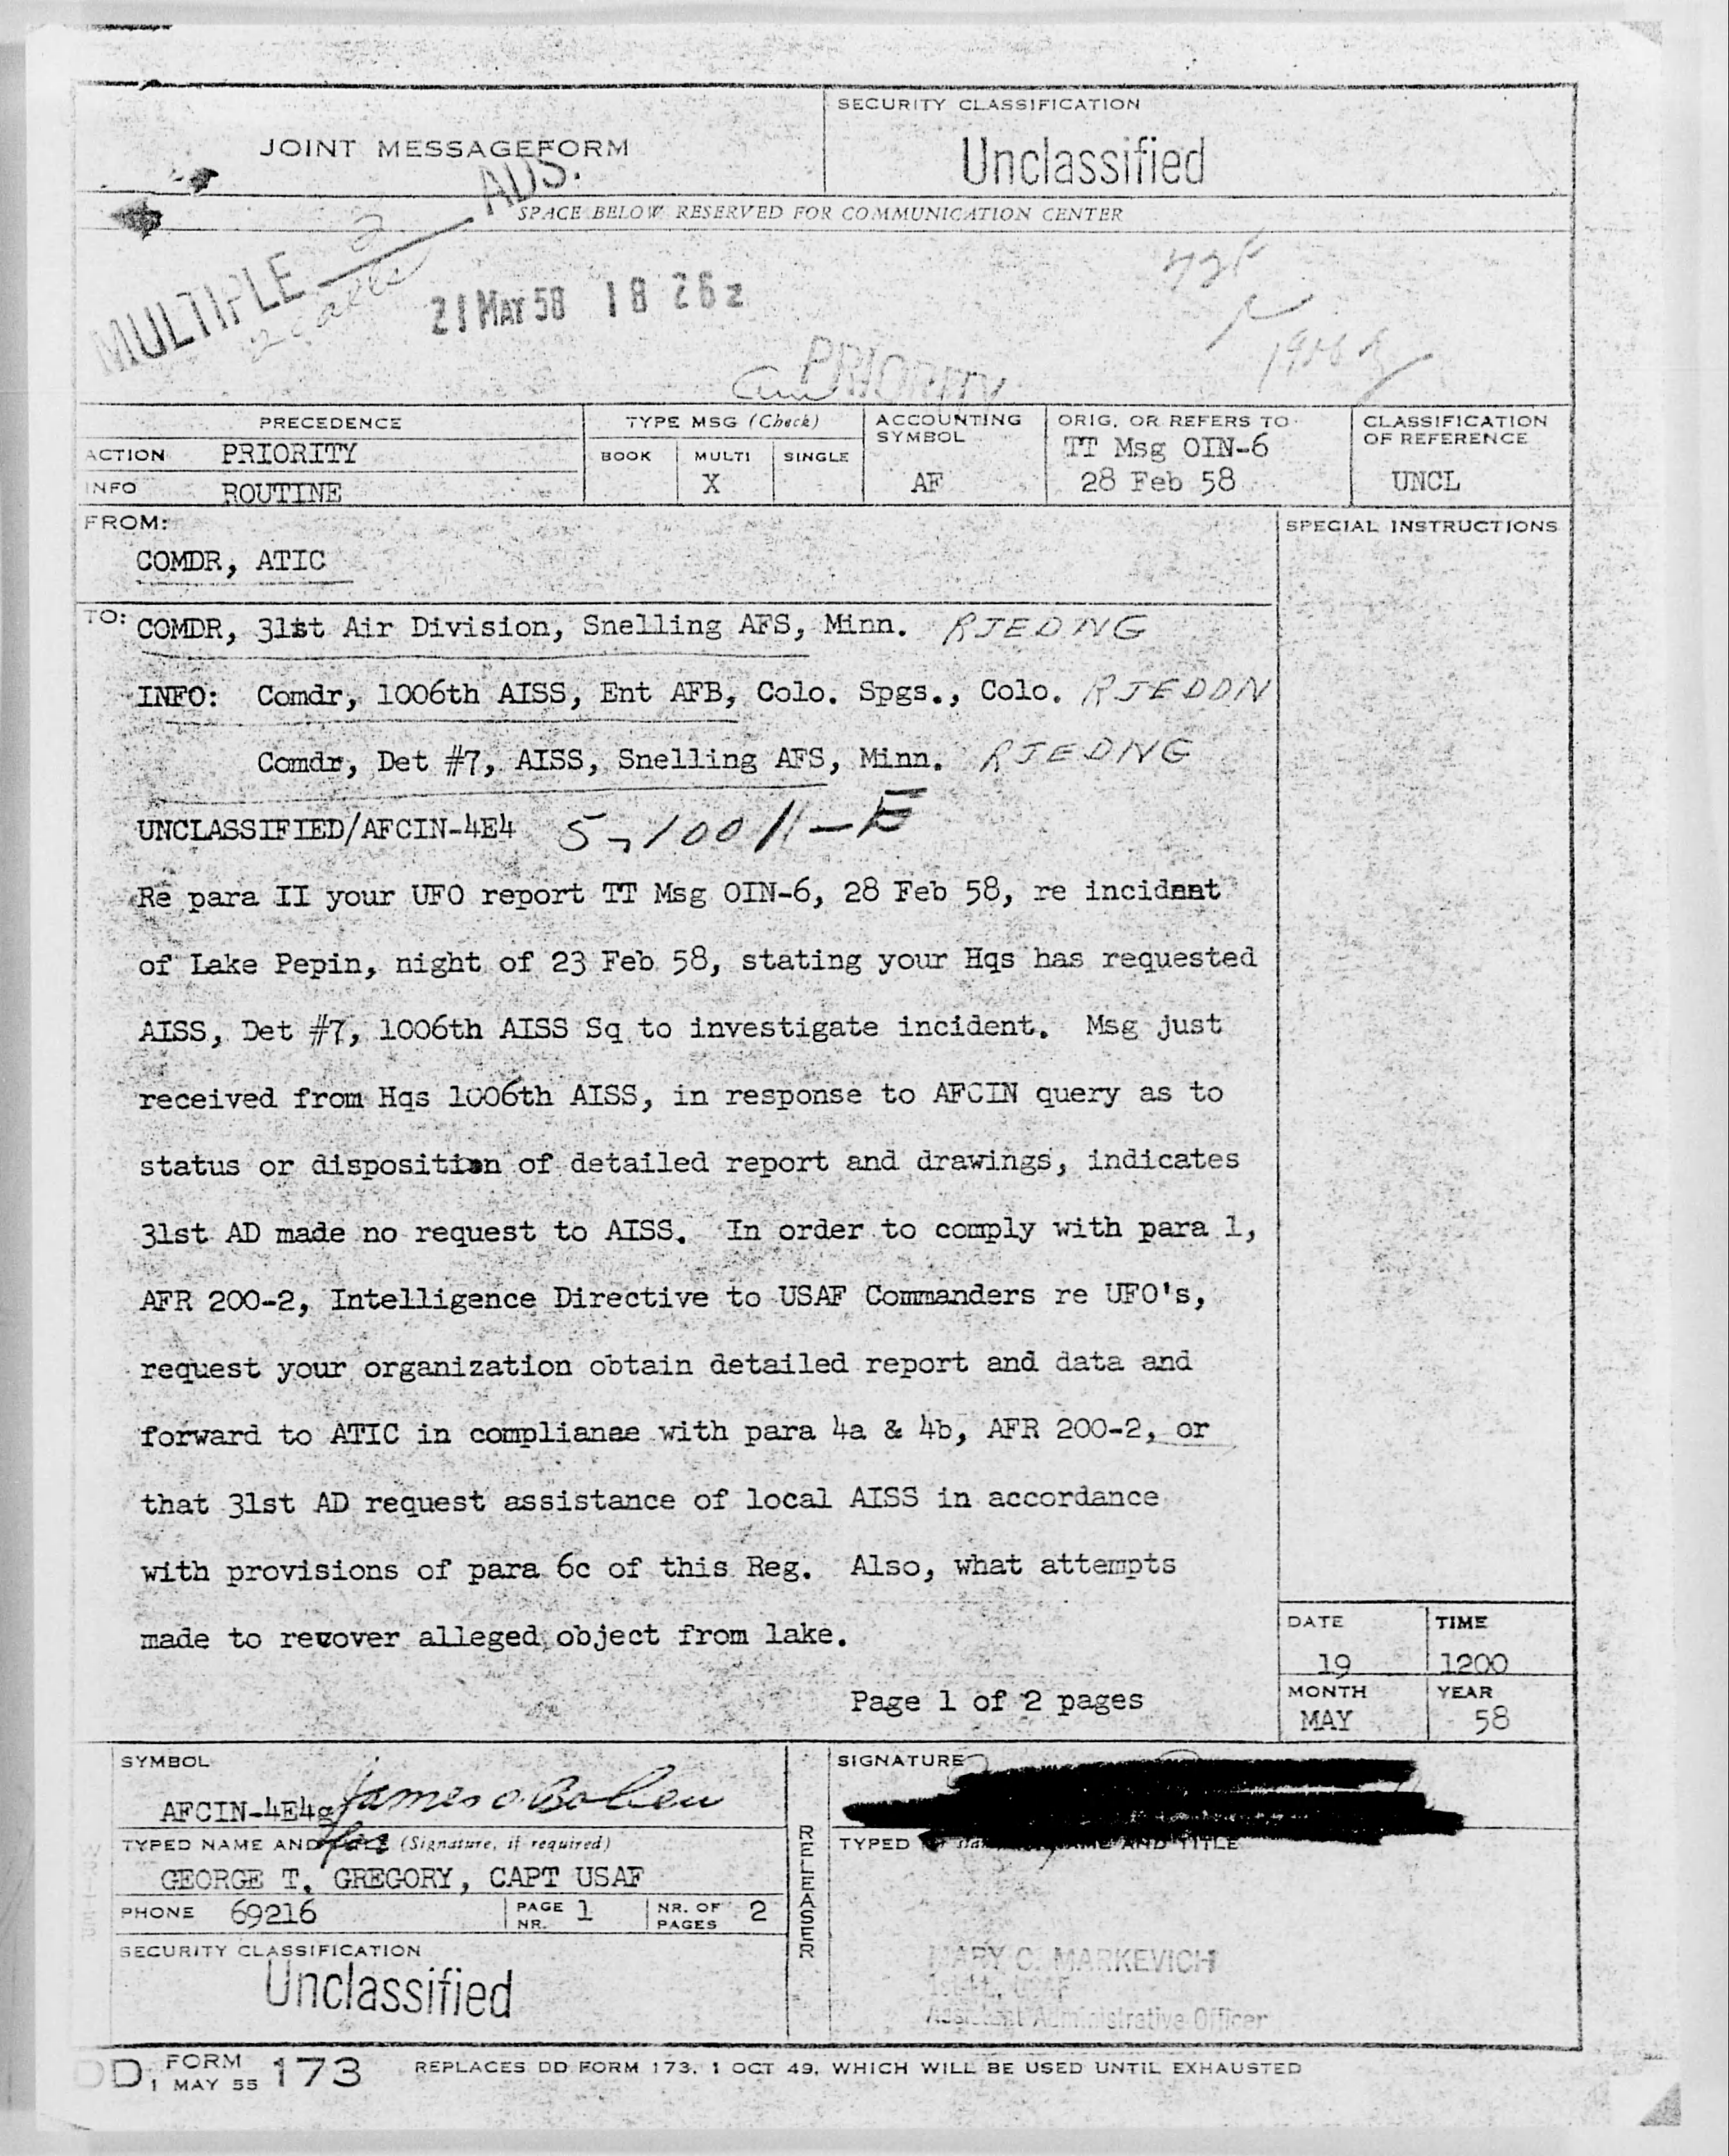 SECURITY CLASSIFICATION
JOINT MESSAGEFORM
Unclassified
ADS.
SPACE BELOW RESERVED FOR COMMUNICATION CENTER
MULTIPLE 2
21 MAY 58 18 26z
PRIORITY
PRECEDENCE
TYPE MSG (Check)
ACCOUNTING SYMBOL
ORIG. OR REFERS TO
CLASSIFICATION OF REFERENCE
ACTION PRIORITY
BOOK MULTI SINGLE
TT Msg OIN-6
INFO ROUTINE
X
AF
28 Feb 58
UNCL
FROM:
SPECIAL INSTRUCTIONS
COMDR, ATIC
TO: COMDR, 31st Air Division, Snelling AFS, Minn. RJEDNG
INFO: Comdr, 1006th AISS, Ent AFB, Colo. Spgs., Colo. RJEDDN
Comdr, Det #7, AISS, Snelling AFS, Minn. RJEDNG
UNCLASSIFIED/AFCIN-4E4 5-10011-E
Re para II your UFO report TT Msg OIN-6, 28 Feb 58, re incident
of Lake Pepin, night of 23 Feb 58, stating your Hqs has requested
AISS, Det #7, 1006th AISS Sq to investigate incident. Msg just
received from Hqs 1006th AISS, in response to AFCIN query as to
status or disposition of detailed report and drawings, indicates
31st AD made no request to AISS. In order to comply with para 1,
AFR 200-2, Intelligence Directive to USAF Commanders re UFO's,
request your organization obtain detailed report and data and
forward to ATIC in compliance with para 4a & 4b, AFR 200-2, or
that 31st AD request assistance of local AISS in accordance
with provisions of para 6c of this Reg. Also, what attempts
made to recover alleged object from lake.
Page 1 of 2 pages
DATE TIME
19 1200
MONTH YEAR
MAY 58
SYMBOL
AFCIN-4E4g James O. Bolieu
for
TYPED NAME AND (Signature, if required)
GEORGE T. GREGORY, CAPT USAF
PHONE 69216
PAGE NR. 1
NR. OF PAGES 2
SECURITY CLASSIFICATION
Unclassified
RELEASER
SIGNATURE
TYPED AND TITLE
MARY C. MARKEVICH
1st Lt, USAF
Assistant Administrative Officer
DD FORM 173
1 MAY 55
REPLACES DD FORM 173, 1 OCT 49, WHICH WILL BE USED UNTIL EXHAUSTED